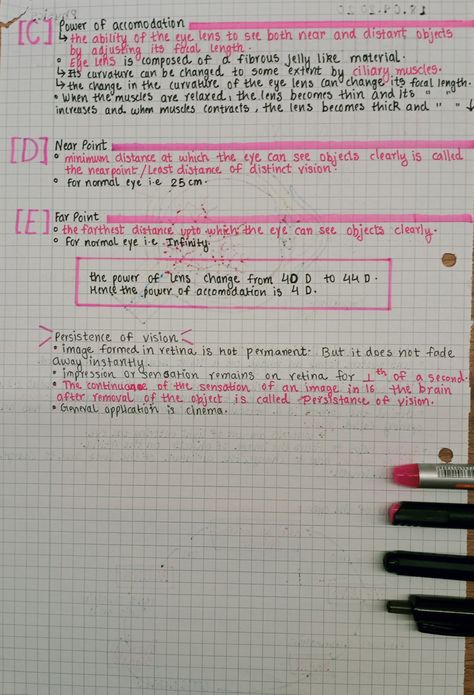 [C] Power of accomodation
↳ the ability of the eye lens to see both near and distant objects
by adjusting its focal length.
• Eye lens is composed of a fibrous jelly like material.
↳ Its curvature can be changed to some extent by ciliary muscles.
↳ the change in the curvature of the eye lens can change its focal length.
• When the muscles are relaxed, the lens becomes thin and its " "
increases and when muscles contracts, the lens becomes thick and " " ↓
[D] Near Point
• minimum distance at which the eye can see objects clearly is called
the nearpoint/Least distance of distinct vision.
• for normal eye i.e 25 cm.
[E] Far Point
• the farthest distance upto which the eye can see objects clearly.
• for normal eye i.e Infinity.
the power of lens change from 40 D to 44 D.
Hence the power of accomodation is 4 D.
Persistence of vision
• image formed in retina is not permanent. But it does not fade
away instantly.
• impression or sensation remains on retina for 1/16 th of a second.
• The continuance of the sensation of an image in the brain
after removal of the object is called Persistance of vision.
• General application is cinema.